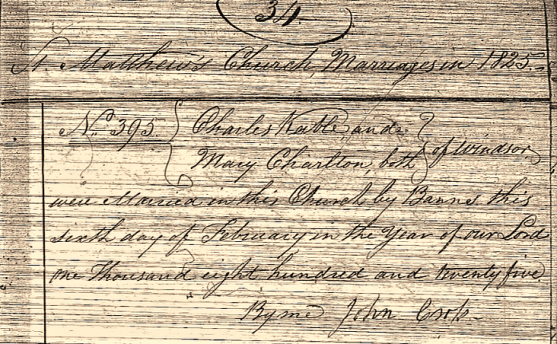 34.
St Matthew's Church, Marriages in 1825.
No. 395 Charles Kable and
Mary Charlton, both of Windsor,
were Married in this Church by Banns this
sixth day of February in the Year of our Lord
one Thousand eight hundred and twenty five.
By me John Cross